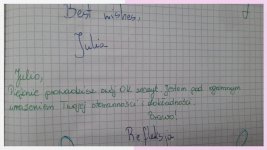 Best wishes,
Julia
Julio,
Pięknie prowadzisz swój OK zeszyt. Jestem pod ogromnym
wrażeniem Twojej staranności i dokładności.
Brawo!
Refleksja